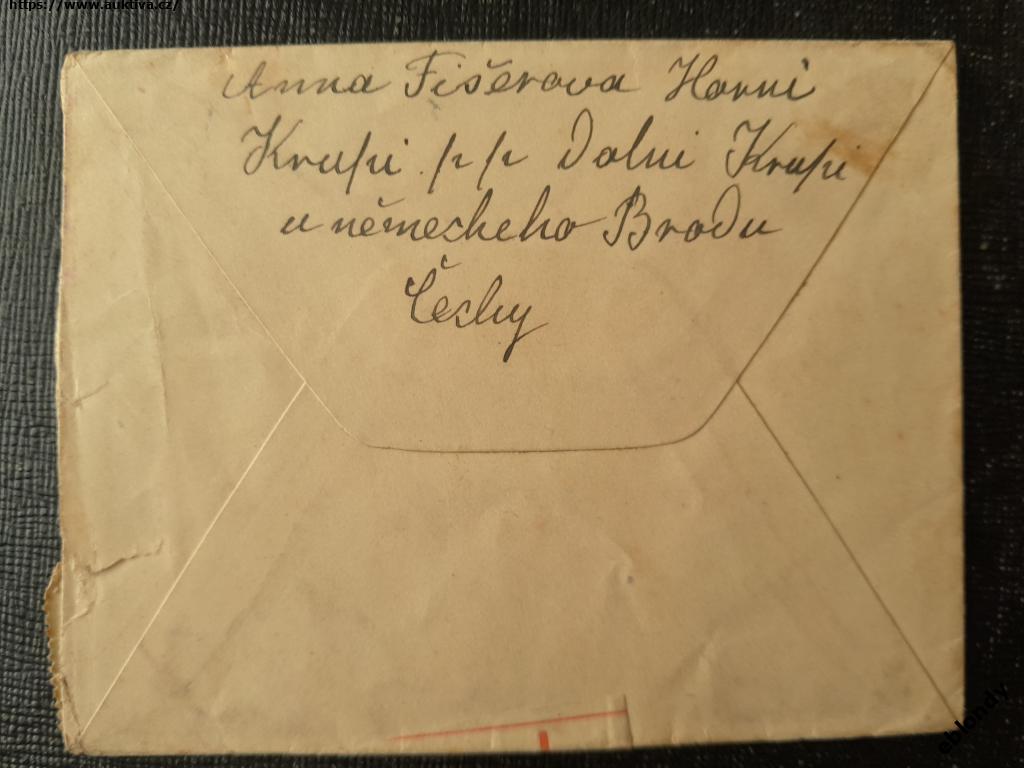 https://www.auktiva.cz/
Anna Fišerova Horni
Krupi p/p Dolni Krupi
u německeho Brodu
Česky
eblondy